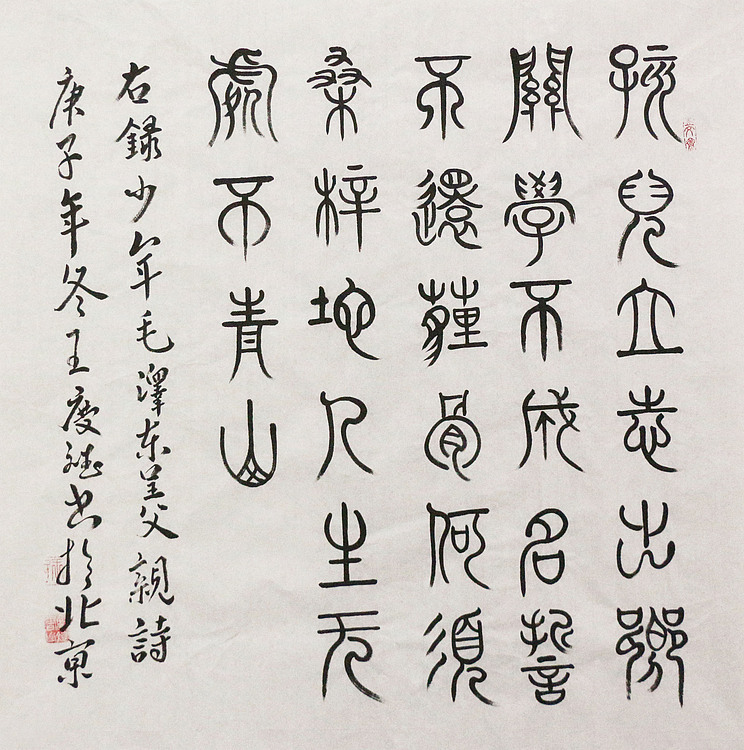 孩兒立志出鄉
關學不成名誓
不還薶骨何須
桑梓地人生无
處不青山
右録少年毛澤东呈父親詩
庚子年冬王书於北京